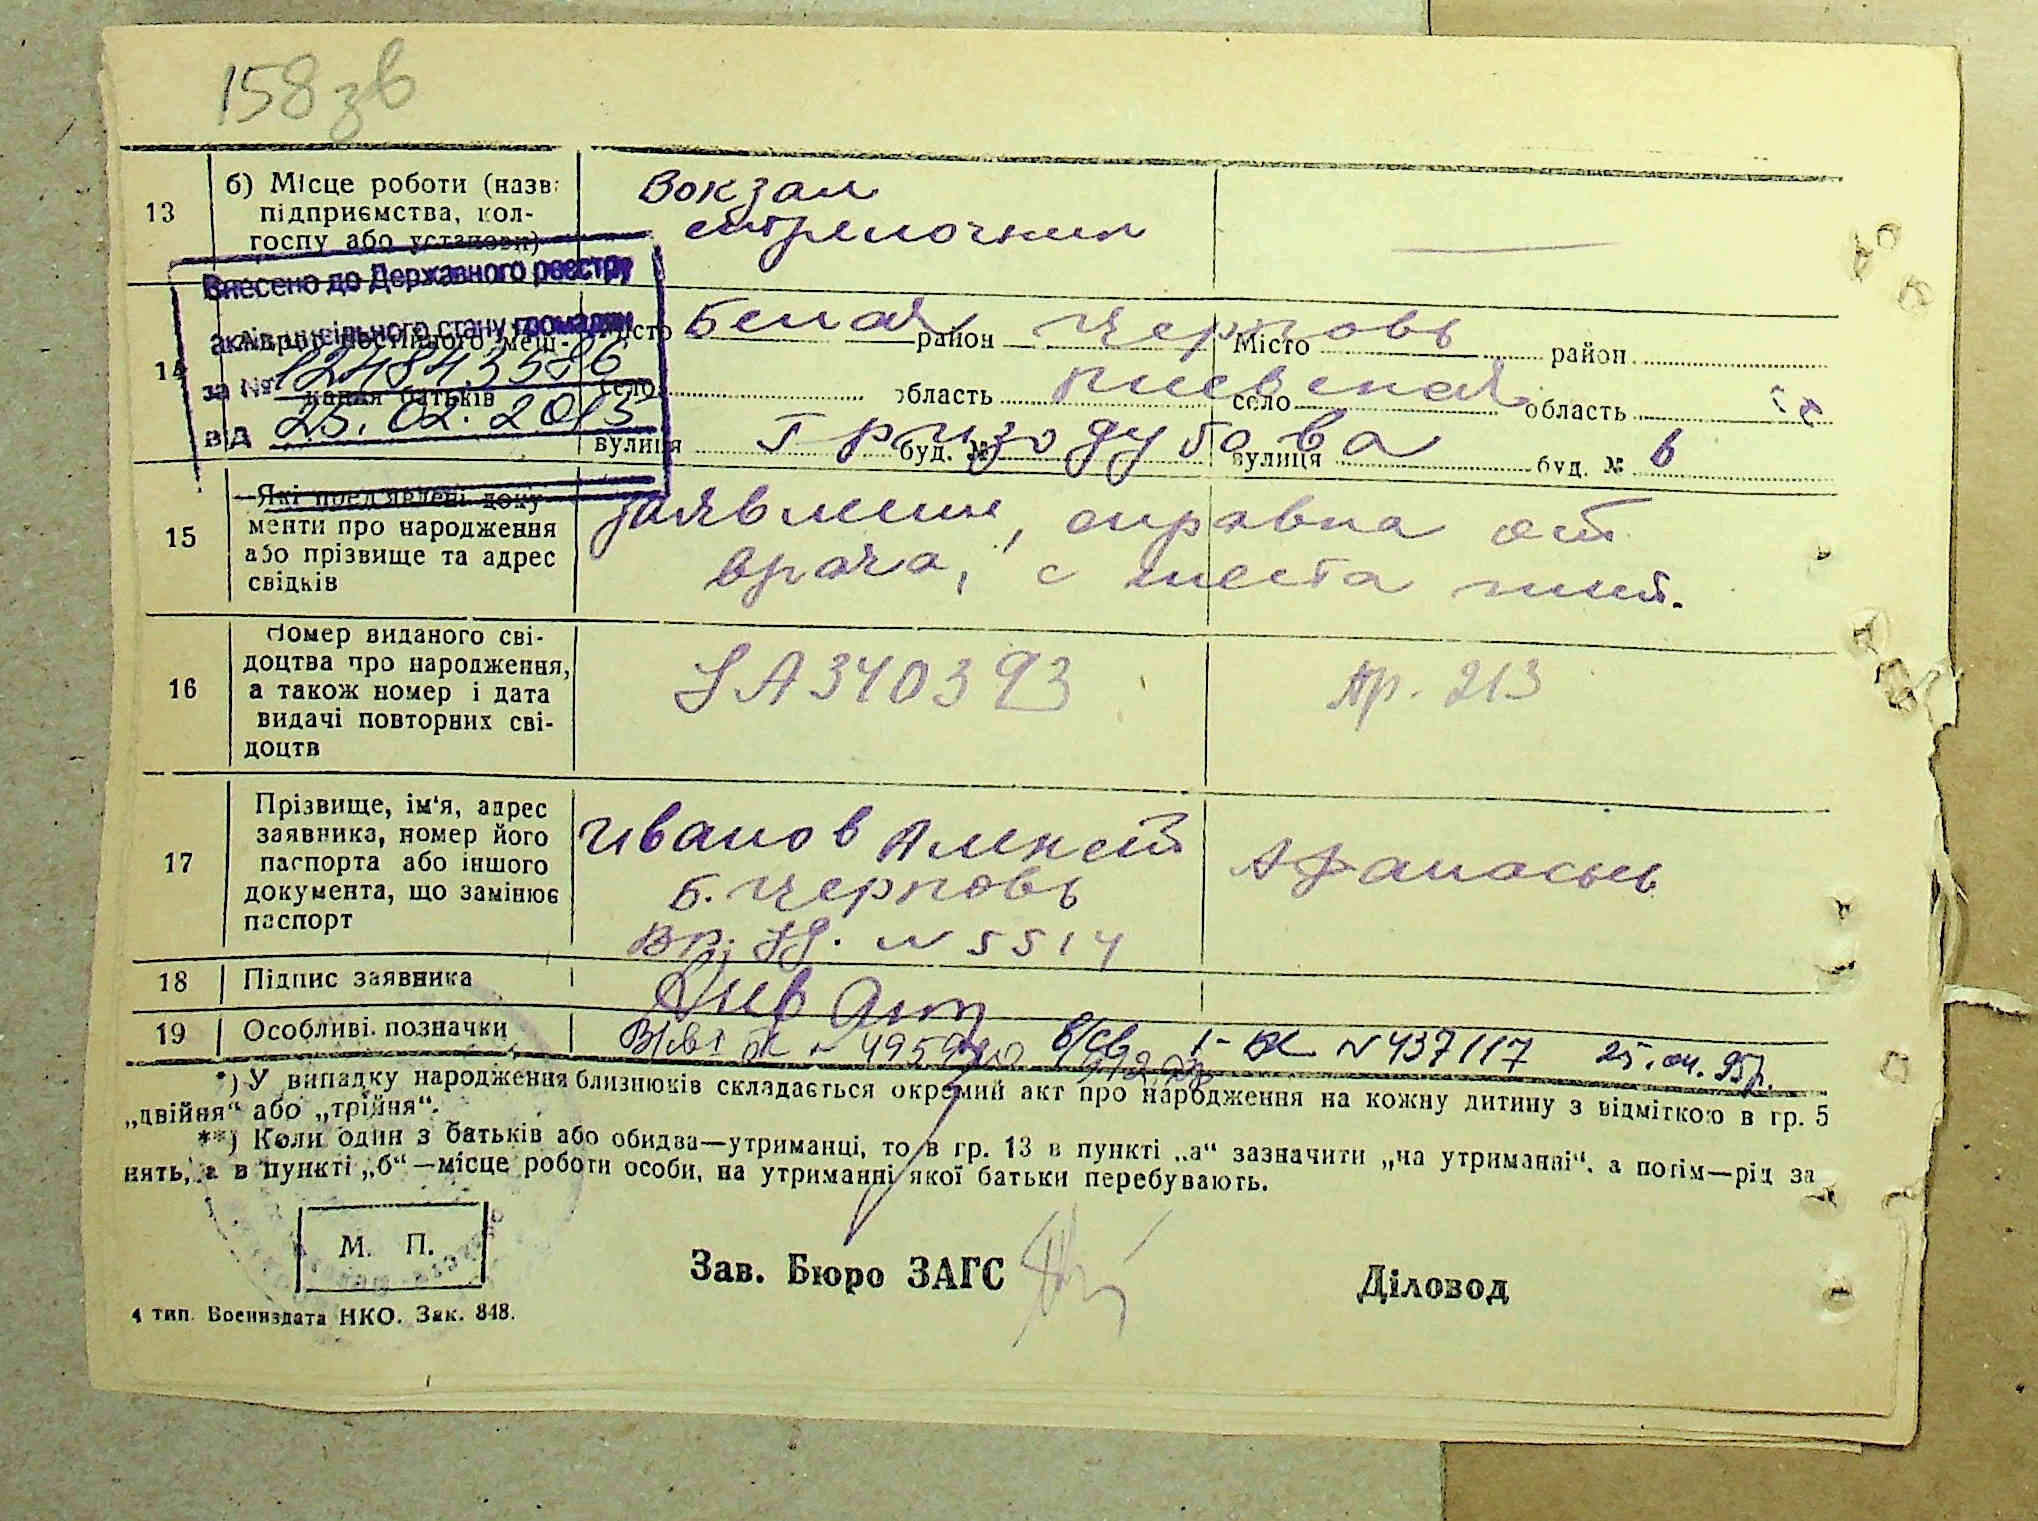 158 зв
13
б) Місце роботи (назв:
підприємства, кол-
госпу або установи)
Вокзал
стрелочник
Внесено до Державного реєстру
актів цивільного стану громадян
за № 12484358б
від 25.02.2013
14
Адрес постійного меш-
кання батьків
місто Белая район Церковь Місто район
село область Киевская село область
вулиця Гризодубова буд. № вулиця буд. № 6
15
Які пред'явлені доку-
менти про народження
або прізвище та адрес
свідків
Заявление, справка от
врача, с места жит.
16
Номер виданого сві-
доцтва про народження,
а також номер і дата
видачі повторних сві-
доцтв
340393
пр. 213
17
Прізвище, ім'я, адрес
заявника, номер його
паспорта або іншого
документа, що замінює
паспорт
Иванов Алексей Афанасьев
Б. Церковь
Вр. уд. № 5514
18
Підпис заявника
19
Особливі позначки
в/св 1-БК № 437117 25.04.95р.
*) У випадку народження близнюків складається окремий акт про народження на кожну дитину з відміткою в гр. 5
„двійня“ або „трійня“.
**) Коли один з батьків або обидва—утриманці, то в гр. 13 в пункті „а“ зазначити „на утриманні“, а потім—рід за
нять, а в пункті „б“—місце роботи особи, на утриманні якої батьки перебувають.
М. П.
Зав. Бюро ЗАГС
Діловод
4 тип. Воениздата НКО. Зак. 848.